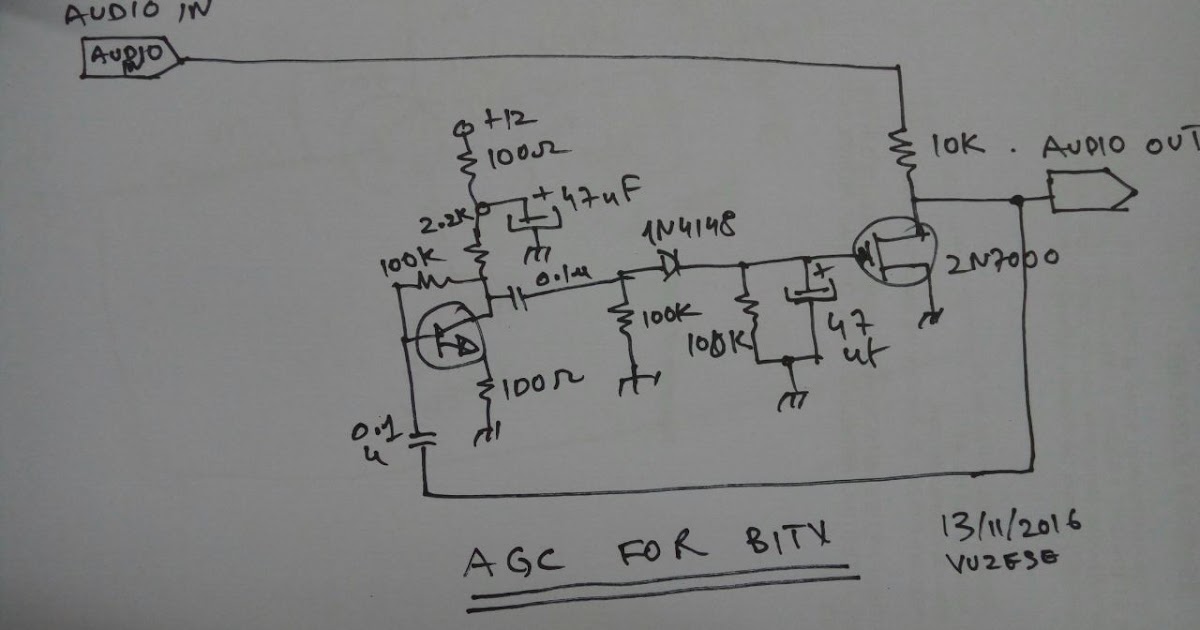 AUDIO IN
AUDIO
IN
+12
100Ω
2.2K
+
47uF
100K
0.1u
1N4148
10K .
AUDIO OUT
2N7000
100K
100K
+
47
uf
100Ω
0.1
u
AGC FOR BITX
13/11/2016
VU2ESE